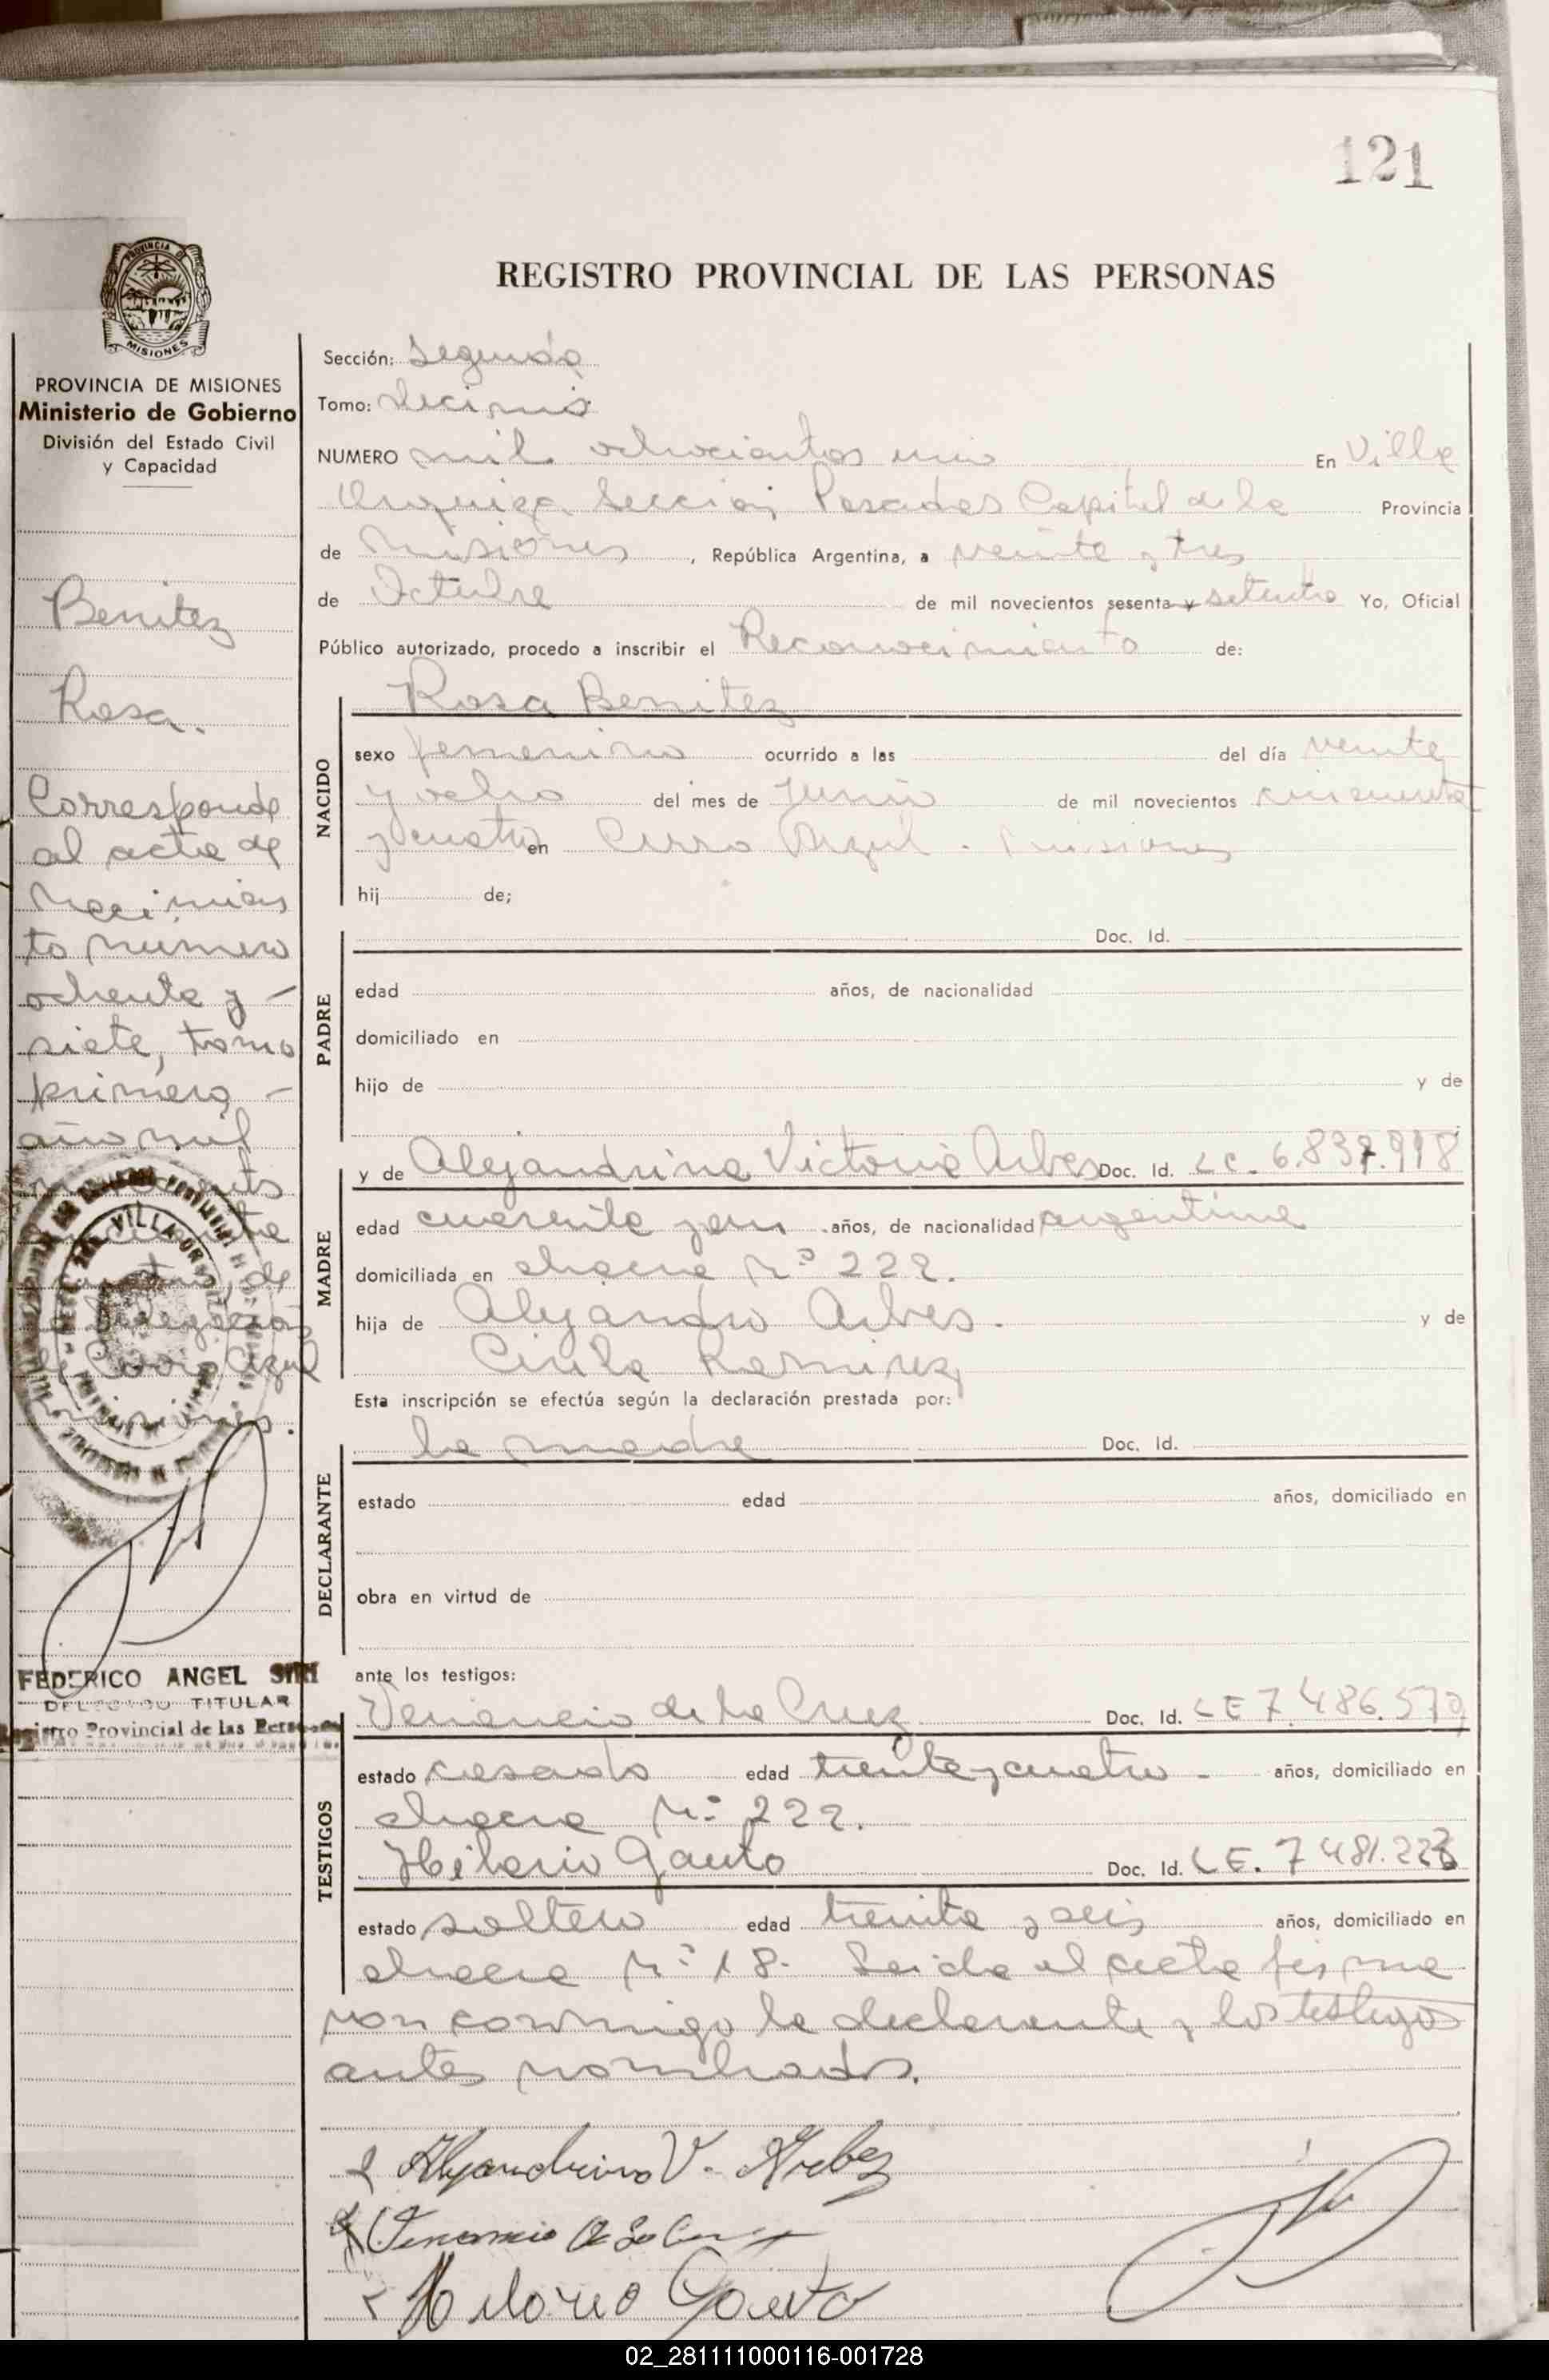 121
REGISTRO PROVINCIAL DE LAS PERSONAS
PROVINCIA DE MISIONES
Ministerio de Gobierno
División del Estado Civil
y Capacidad
Benitez
Rosa.
Corresponde
al acta de
nacimien
to numero
ochenta y -
siete, tomo
primero -
año mil
de
Cerro Azul
FEDERICO ANGEL
DELEGADO TITULAR
Registro Provincial de las Personas
Sección: Segunda
Tomo: decimo
NUMERO mil ochocientos uno En Villa
Urquiza Sección Posadas Capital de la Provincia
de Misiones, República Argentina, a veinte y tres
de Octubre de mil novecientos sesenta y setenta Yo, Oficial
Público autorizado, procedo a inscribir el Reconocimiento de:
NACIDO
Rosa Benitez
sexo femenino ocurrido a las del día veinte
y ocho del mes de Junio de mil novecientos cincuenta
y cuatro en Cerro Azul - Misiones
hij de;
PADRE
Doc. Id.
edad años, de nacionalidad
domiciliado en
hijo de y de
MADRE
y de Alejandrina Victoria Arbes Doc. Id. LC. 6.837.918
edad cuarenta y un años, de nacionalidad argentina
domiciliada en chacra Nº 222.
hija de Alejandro Arbes. y de
Cirila Ramirez
Esta inscripción se efectúa según la declaración prestada por:
DECLARANTE
la madre Doc. Id.
estado edad años, domiciliado en
obra en virtud de
ante los testigos:
TESTIGOS
Venancio de la Cruz Doc. Id. LE 7.486.579
estado casado edad treinta y cuatro - años, domiciliado en
chacra Nº 222.
Hilario Gauto Doc. Id. LE. 7481.223
estado soltero edad treinta y seis años, domiciliado en
chacra Nº 18. Leida el acta firma
ron conmigo la declarante y los testigos
antes nombrados.
Alejandrina V. Arbez
Venancio de la Cruz
Hilario Gauto
02_281111000116-001728